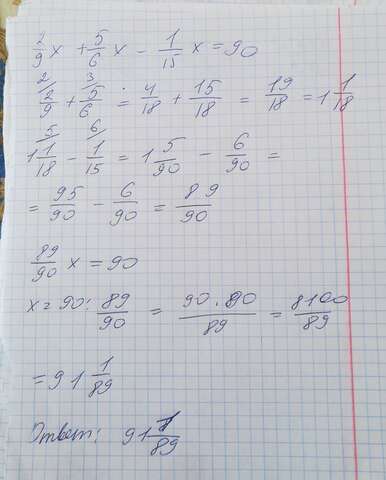 2/9 x + 5/6 x - 1/15 x = 90
2/ 3/
2/9 + 5/6 = 4/18 + 15/18 = 19/18 = 1 1/18
5/ 6/
1 1/18 - 1/15 = 1 5/90 - 6/90 =
= 95/90 - 6/90 = 89/90
89/90 x = 90
x = 90 : 89/90 = 90 · 90/89 = 8100/89
= 91 1/89
Ответ: 91 1/89